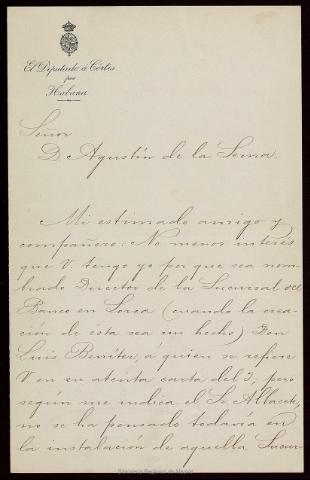 El Diputado á Cortes
por
Habana
Señor
D. Agustín de la Serna.
Mi estimado amigo y
compañero: No menor interés
que V. tengo yo por que sea nom-
brado Director de la Sucursal del
Banco en Lorca (cuando la crea-
ción de ésta sea un hecho) Don
Luis Benítez, á quien se refiere
V. en su atenta carta del 3, pero
según me indica el Sr. Albacete,
no se ha pensado todavía en
la instalación de aquella Sucur-